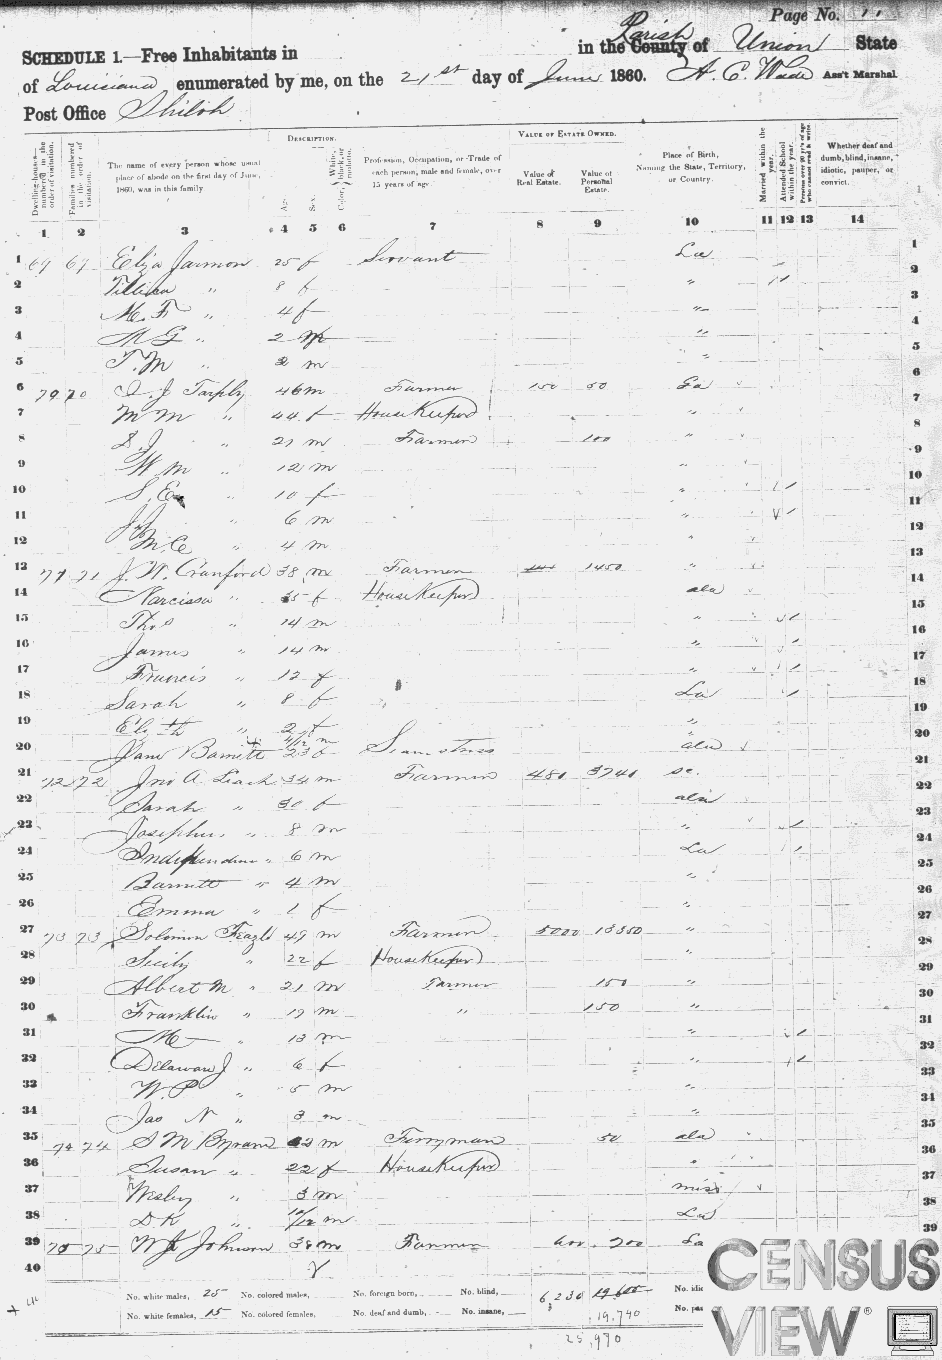 Page No. 11
SCHEDULE 1.—Free Inhabitants in in the County Parish of Union State
of Louisiana enumerated by me, on the 21st day of June 1860. A. C. Wade Ass't Marshal
Post Office Shiloh
DESCRIPTION. VALUE OF ESTATE OWNED.
Dwelling-houses—numbered in the order of visitation.
Families numbered in the order of visitation.
The name of every person whose usual place of abode on the first day of June, 1860, was in this family.
Age. Sex. Color, White, black, or mulatto.
Profession, Occupation, or Trade of each person, male and female, over 15 years of age.
Value of Real Estate. Value of Personal Estate.
Place of Birth, Naming the State, Territory, or Country.
Married within the year. Attended School within the year. Persons over 20 y'rs of age who cannot read & write.
Whether deaf and dumb, blind, insane, idiotic, pauper, or convict.
1 2 3 4 5 6 7 8 9 10 11 12 13 14
1 69 69 Eliza Jarmon 25 f Servant La 1
2 " 8 f " 2
3 M. F. " 4 f " 3
4 M G " 2 m " 4
5 T. M " 2 m " 5
6 70 70 J Tarply 46 m Farmer 150 50 Ga 6
7 M M " 44 f HouseKeeper " 7
8 S J " 21 m Farmer 100 " 8
9 W m " 12 m " 9
10 S. E " 10 f " 10
11 " 6 m " 11
12 M. C " 4 m " 12
13 71 71 J. W. Cranford 38 m Farmer 1450 " 13
14 Narcissa " 35 f HouseKeeper ala 14
15 Thos " 14 m " 15
16 James " 14 m " 16
17 Francis " 12 f " 17
18 Sarah " 8 f La 18
19 Elizth " 2 f " 19
20 Jane Barnett 23 f Seamstress ala 20
21 72 72 Jno A. Leach 34 m Farmer 480 3740 sc. 21
22 Sarah " 30 f ala 22
23 Josephus " 8 m " 23
24 Independence " 6 m La 24
25 Barnett " 4 m " 25
26 Emma " 1 f " 26
27 73 73 Solomon Feazle 49 m Farmer 5000 13350 " 27
28 Sicily " 22 f HouseKeeper " 28
29 Albert M " 21 m Farmer 150 " 29
30 Franklin " 19 m " 150 " 30
31 M " 13 m " 31
32 Delaware J " 6 f " 32
33 W. P " 5 m " 33
34 Jas N " 3 m " 34
35 74 74 S M Byram 22 m Ferryman 50 ala 35
36 Susan " 22 f HouseKeeper " 36
37 Wesley " 3 m miss 37
38 D K " 10/12 m La 38
39 75 75 Johnson 38 m Farmer 600 700 39
40
No. white males, 25 No. colored males, No. foreign born, No. blind, 6230 19,600 No. idio
No. white females, 15 No. colored females, No. deaf and dumb, No. insane, 19,740 No. pau
25,970
CENSUS
VIEW®